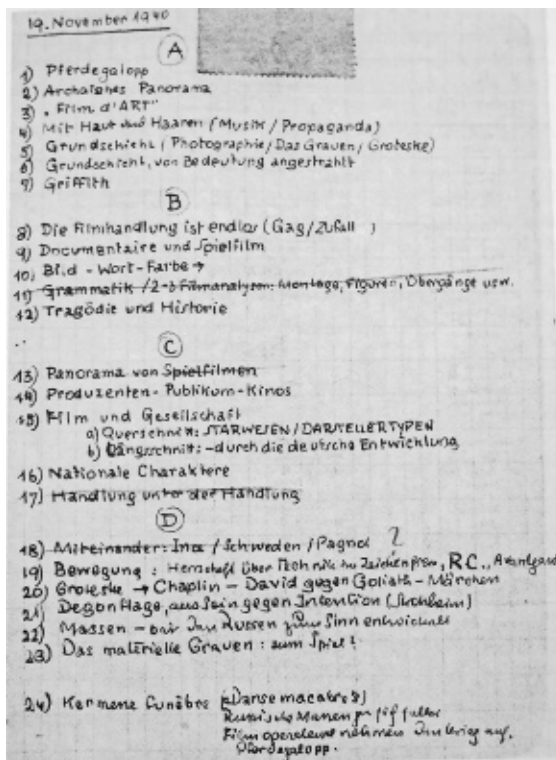 19. November 1940
A
1) Pferdegalopp
2) Archaisches Panorama
3) „Film d'ART"
4) Mit Haut und Haaren (Musik / Propaganda)
5) Grundschicht (Photographie / Das Grauen / Groteske)
6) Grundschicht, von Bedeutung angestrahlt
7) Griffith
B
8) Die Filmhandlung ist endlos (Gag / Zufall )
9) Documentaire und Spielfilm
10) Bild - Wort - Farbe →
11) Grammatik / 2-3 Filmanalysen: Montage, Figuren, Übergänge usw.
12) Tragödie und Historie
C
13) Panorama von Spielfilmen
14) Produzenten - Publikum - Kinos
15) Film und Gesellschaft
a) Querschnitt: STARWESEN / DARSTELLERTYPEN
b) Längsschnitt: - durch die deutsche Entwicklung
16) Nationale Charaktere
17) Handlung unter der Handlung
D
18) Miteinander: Ince / Schweden / Pagnol ?
19) Bewegung: Herrschaft über Technik im Zeichenfilm, R.C., Avantgarde
20) Groteske → Chaplin - David gegen Goliath - Märchen
21) Degonflage, gegen Intention (Stroheim)
22) Massen - Russen zum Sinn entwickelt
23) Das materielle Grauen: zum Spiel:
24) Kermesse funèbre (Danse macabre)
Russische
Film nehmen den Krieg auf.
Pferdegalopp.